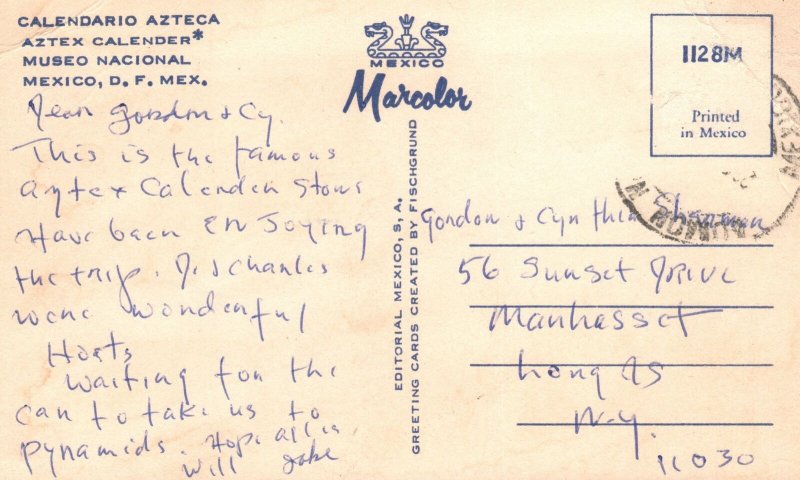 CALENDARIO AZTECA
AZTEX CALENDER*
MUSEO NACIONAL
MEXICO, D. F. MEX.
Dear Gordon & Cy.
This is the famous
aztex Calender Stone
Have been ENJoying
the trip. & Charles
were wonderful
Hosts
waiting for the
car to take us to
pyramids. Hope all is
well Jake
MEXICO
Marcolor
EDITORIAL MEXICO, S, A.
GREETING CARDS CREATED BY FISCHGRUND
1128M
Printed
in Mexico
Gordon & Cynthia Sherman
56 Sunset Drive
Manhasset
Long IS
N.Y.
11030